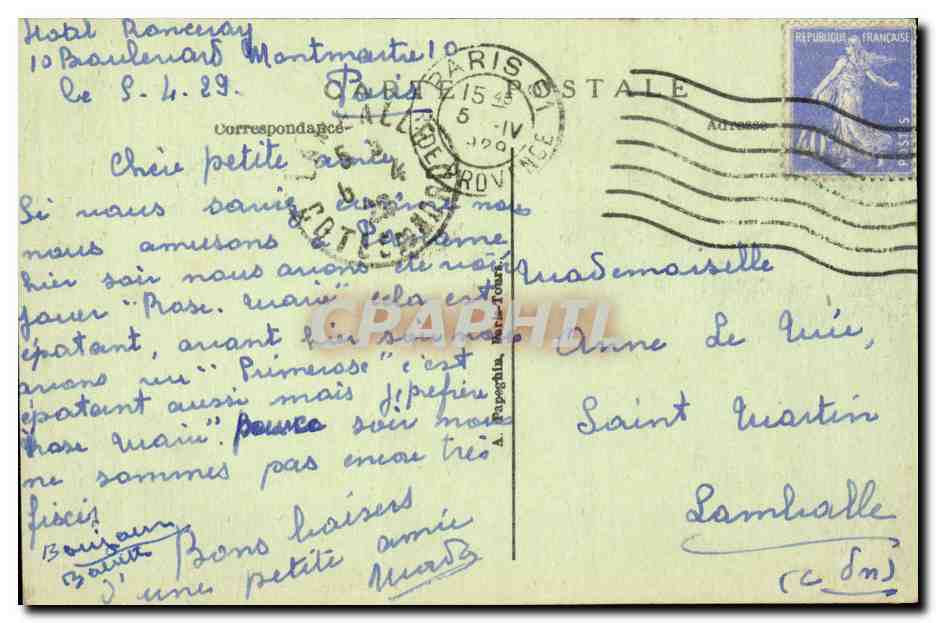 Hotel Ronceray
10 Boulevard Montmartre 10
le 5.4.29. Paris
CARTE POSTALE
Correspondance
Adresse
REPUBLIQUE FRANÇAISE
POSTES
PARIS 51
15 45
5 -IV
1929
PROVENCE
LAMBALLE
COTES-DU-NORD
Chère petite amie
Si vous saviez comme nous
nous amusons à Paris
hier soir nous avons été voir
jouer "Rose-Marie" cela est
épatant, avant hier soir nous
avons vu "Primerose" c'est
épatant aussi mais je préfère
Rose Marie". pour ce soir nous
ne sommes pas encore très
fixés
Bons baisers
d'une petite amie
Mado
Bonjour
Mademoiselle
Anne Le
Saint Martin
Lamballe
(C du N)
A. Papeghin, Paris-Tours.
CPAPHIL